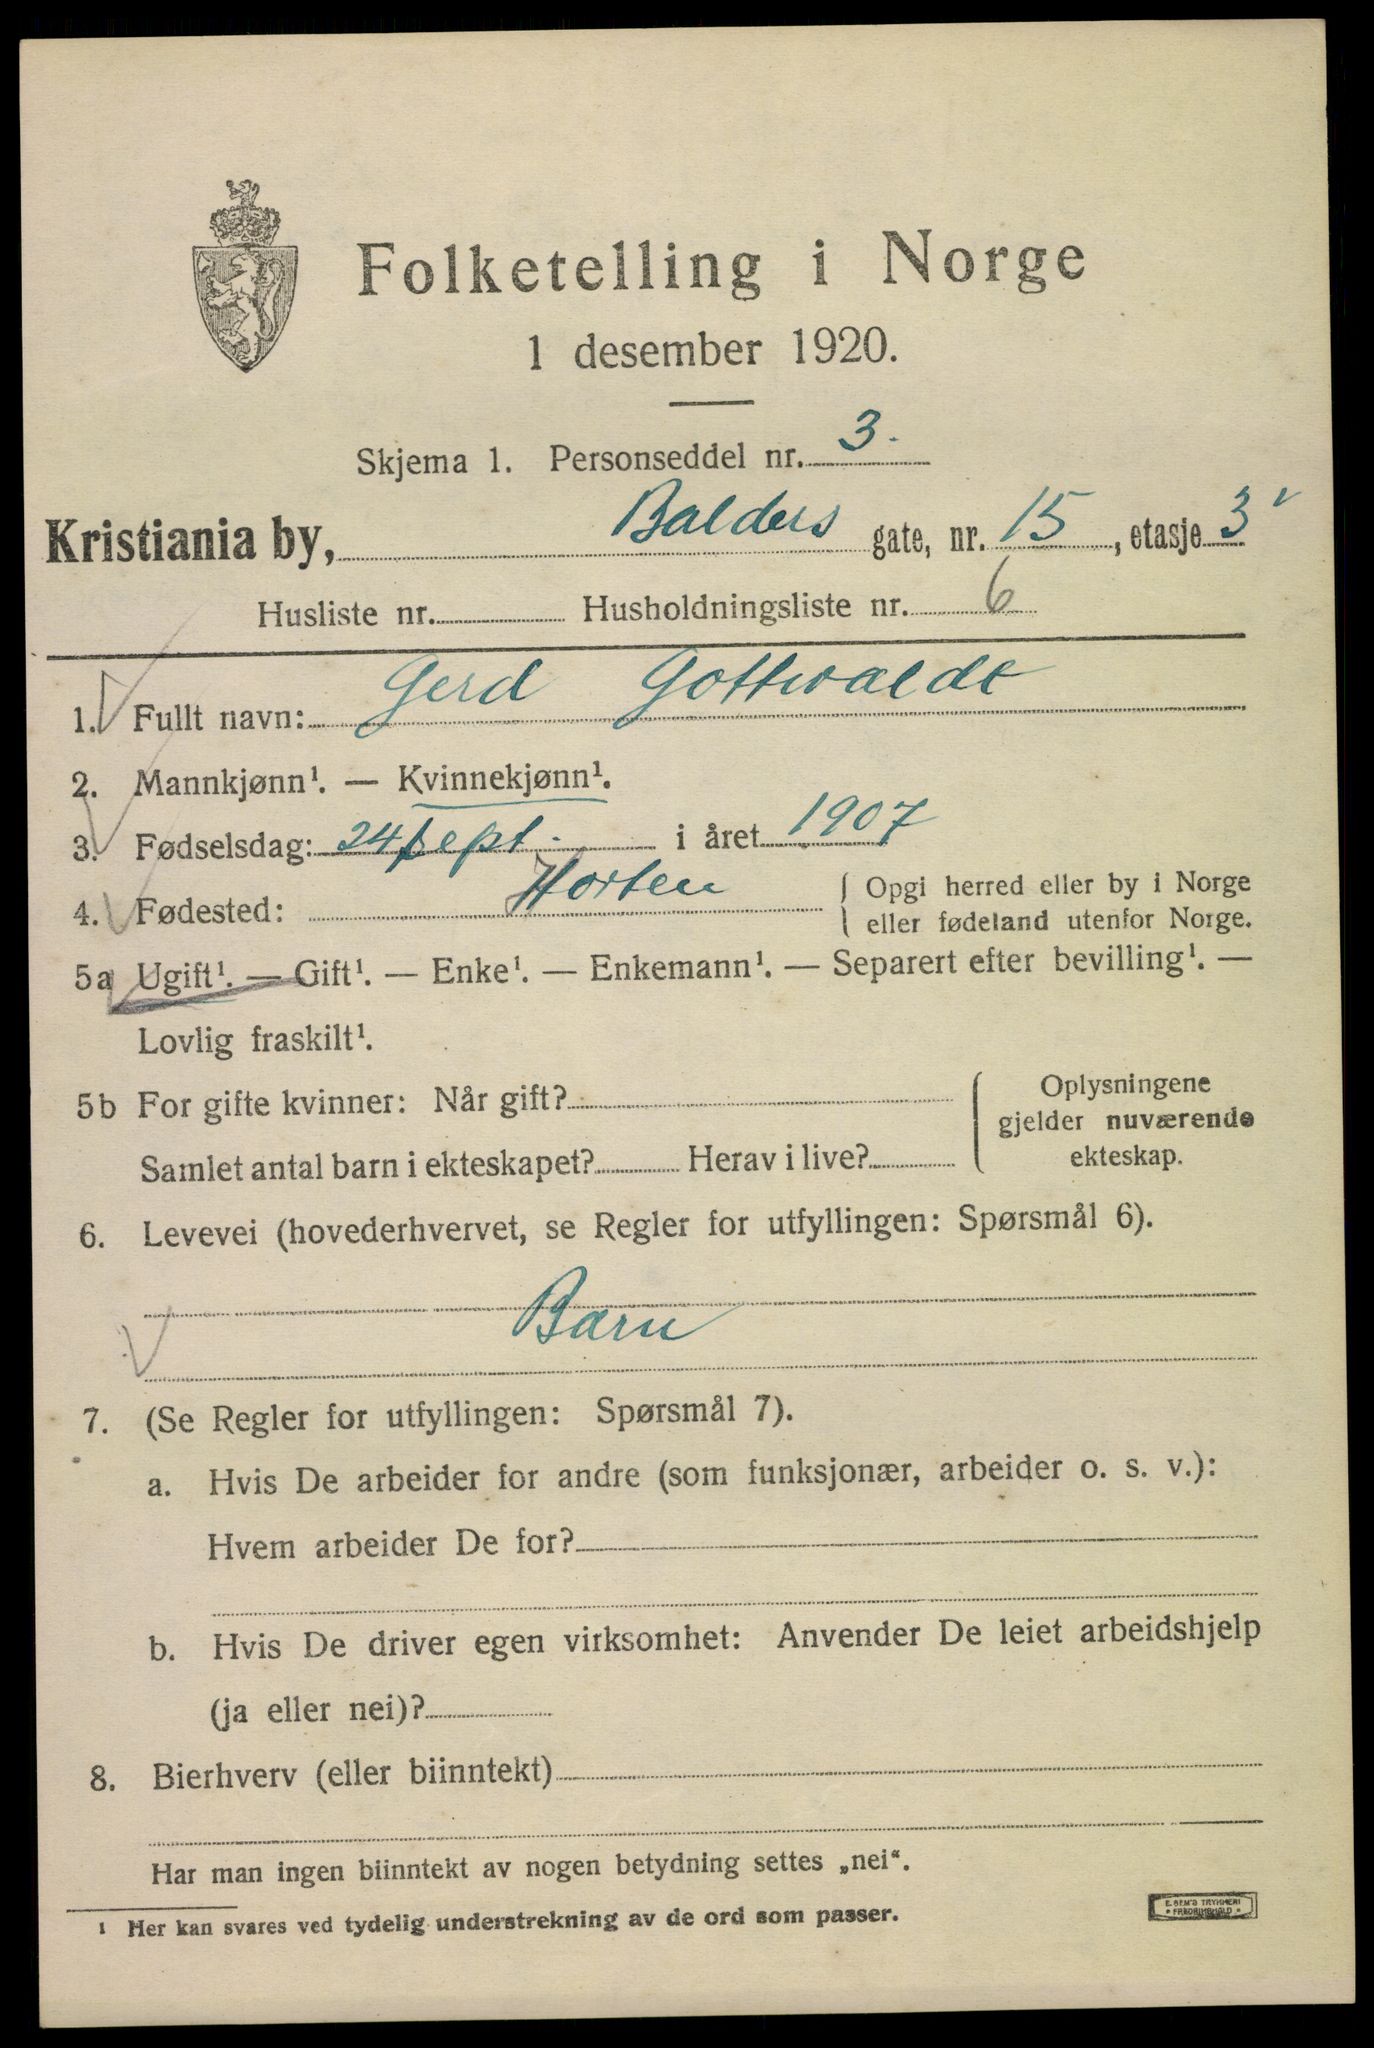 Folketelling i Norge
1 desember 1920.
Skjema 1. Personseddel nr. 3.
Kristiania by, Balders gate, nr. 15, etasje 3
Husliste nr. Husholdningsliste nr. 6
1. Fullt navn: Gerd Gottwaldt
2. Mannkjønn¹. — Kvinnekjønn¹.
3. Fødselsdag: 24 sept. i året 1907
4. Fødested: Horten { Opgi herred eller by i Norge
eller fødeland utenfor Norge.
5a Ugift¹. — Gift¹. — Enke¹. — Enkemann¹. — Separert efter bevilling¹. —
Lovlig fraskilt¹.
5b For gifte kvinner: Når gift?
Samlet antal barn i ekteskapet? Herav i live?
Oplysningene
gjelder nuværende
ekteskap.
6. Levevei (hovederhvervet, se Regler for utfyllingen: Spørsmål 6).
Barn
7. (Se Regler for utfyllingen: Spørsmål 7).
a. Hvis De arbeider for andre (som funksjonær, arbeider o. s. v.):
Hvem arbeider De for?
b. Hvis De driver egen virksomhet: Anvender De leiet arbeidshjelp
(ja eller nei)?
8. Bierhverv (eller biinntekt)
Har man ingen biinntekt av nogen betydning settes „nei“.
¹ Her kan svares ved tydelig understrekning av de ord som passer.
E. SEM'S TRYKKERI
* FREDRIKSHALD *